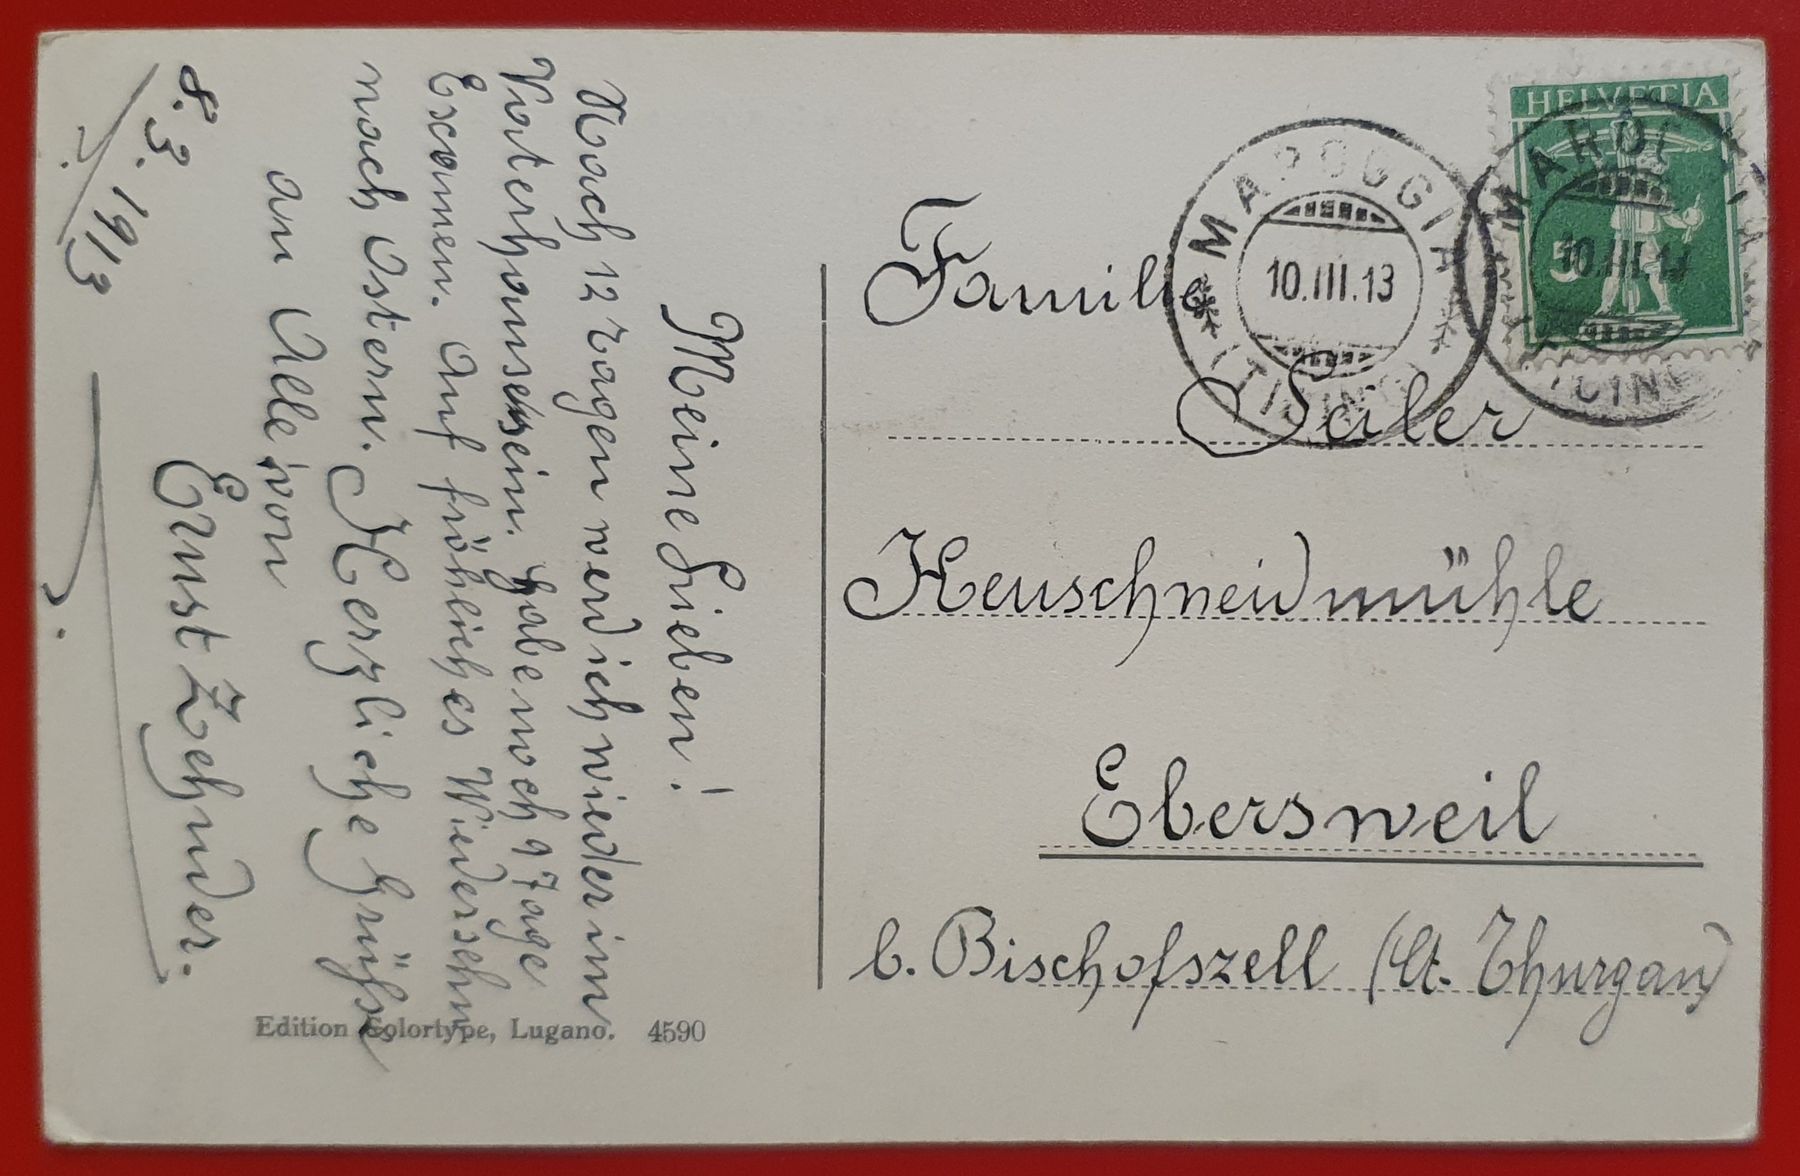 8. 3. 1913
Meine Lieben!
Nach 12 Tagen werd ich wieder im
Vaterhause sein. Habe noch 9 Tage
Examen. Auf fröhliches Wiedersehn
nach Ostern. Herzliche Grüsse
an Alle von
Ernst Zehnder.
Edition Colortype, Lugano. 4590
HELVETIA
5
MAROGGIA
10.III.13
(TICINO)
MAROGGIA
10.III.13
(TICINO)
Familie
Seiler
Heuschneidmühle
Ebersweil
b. Bischofszell (Ct. Thurgau)